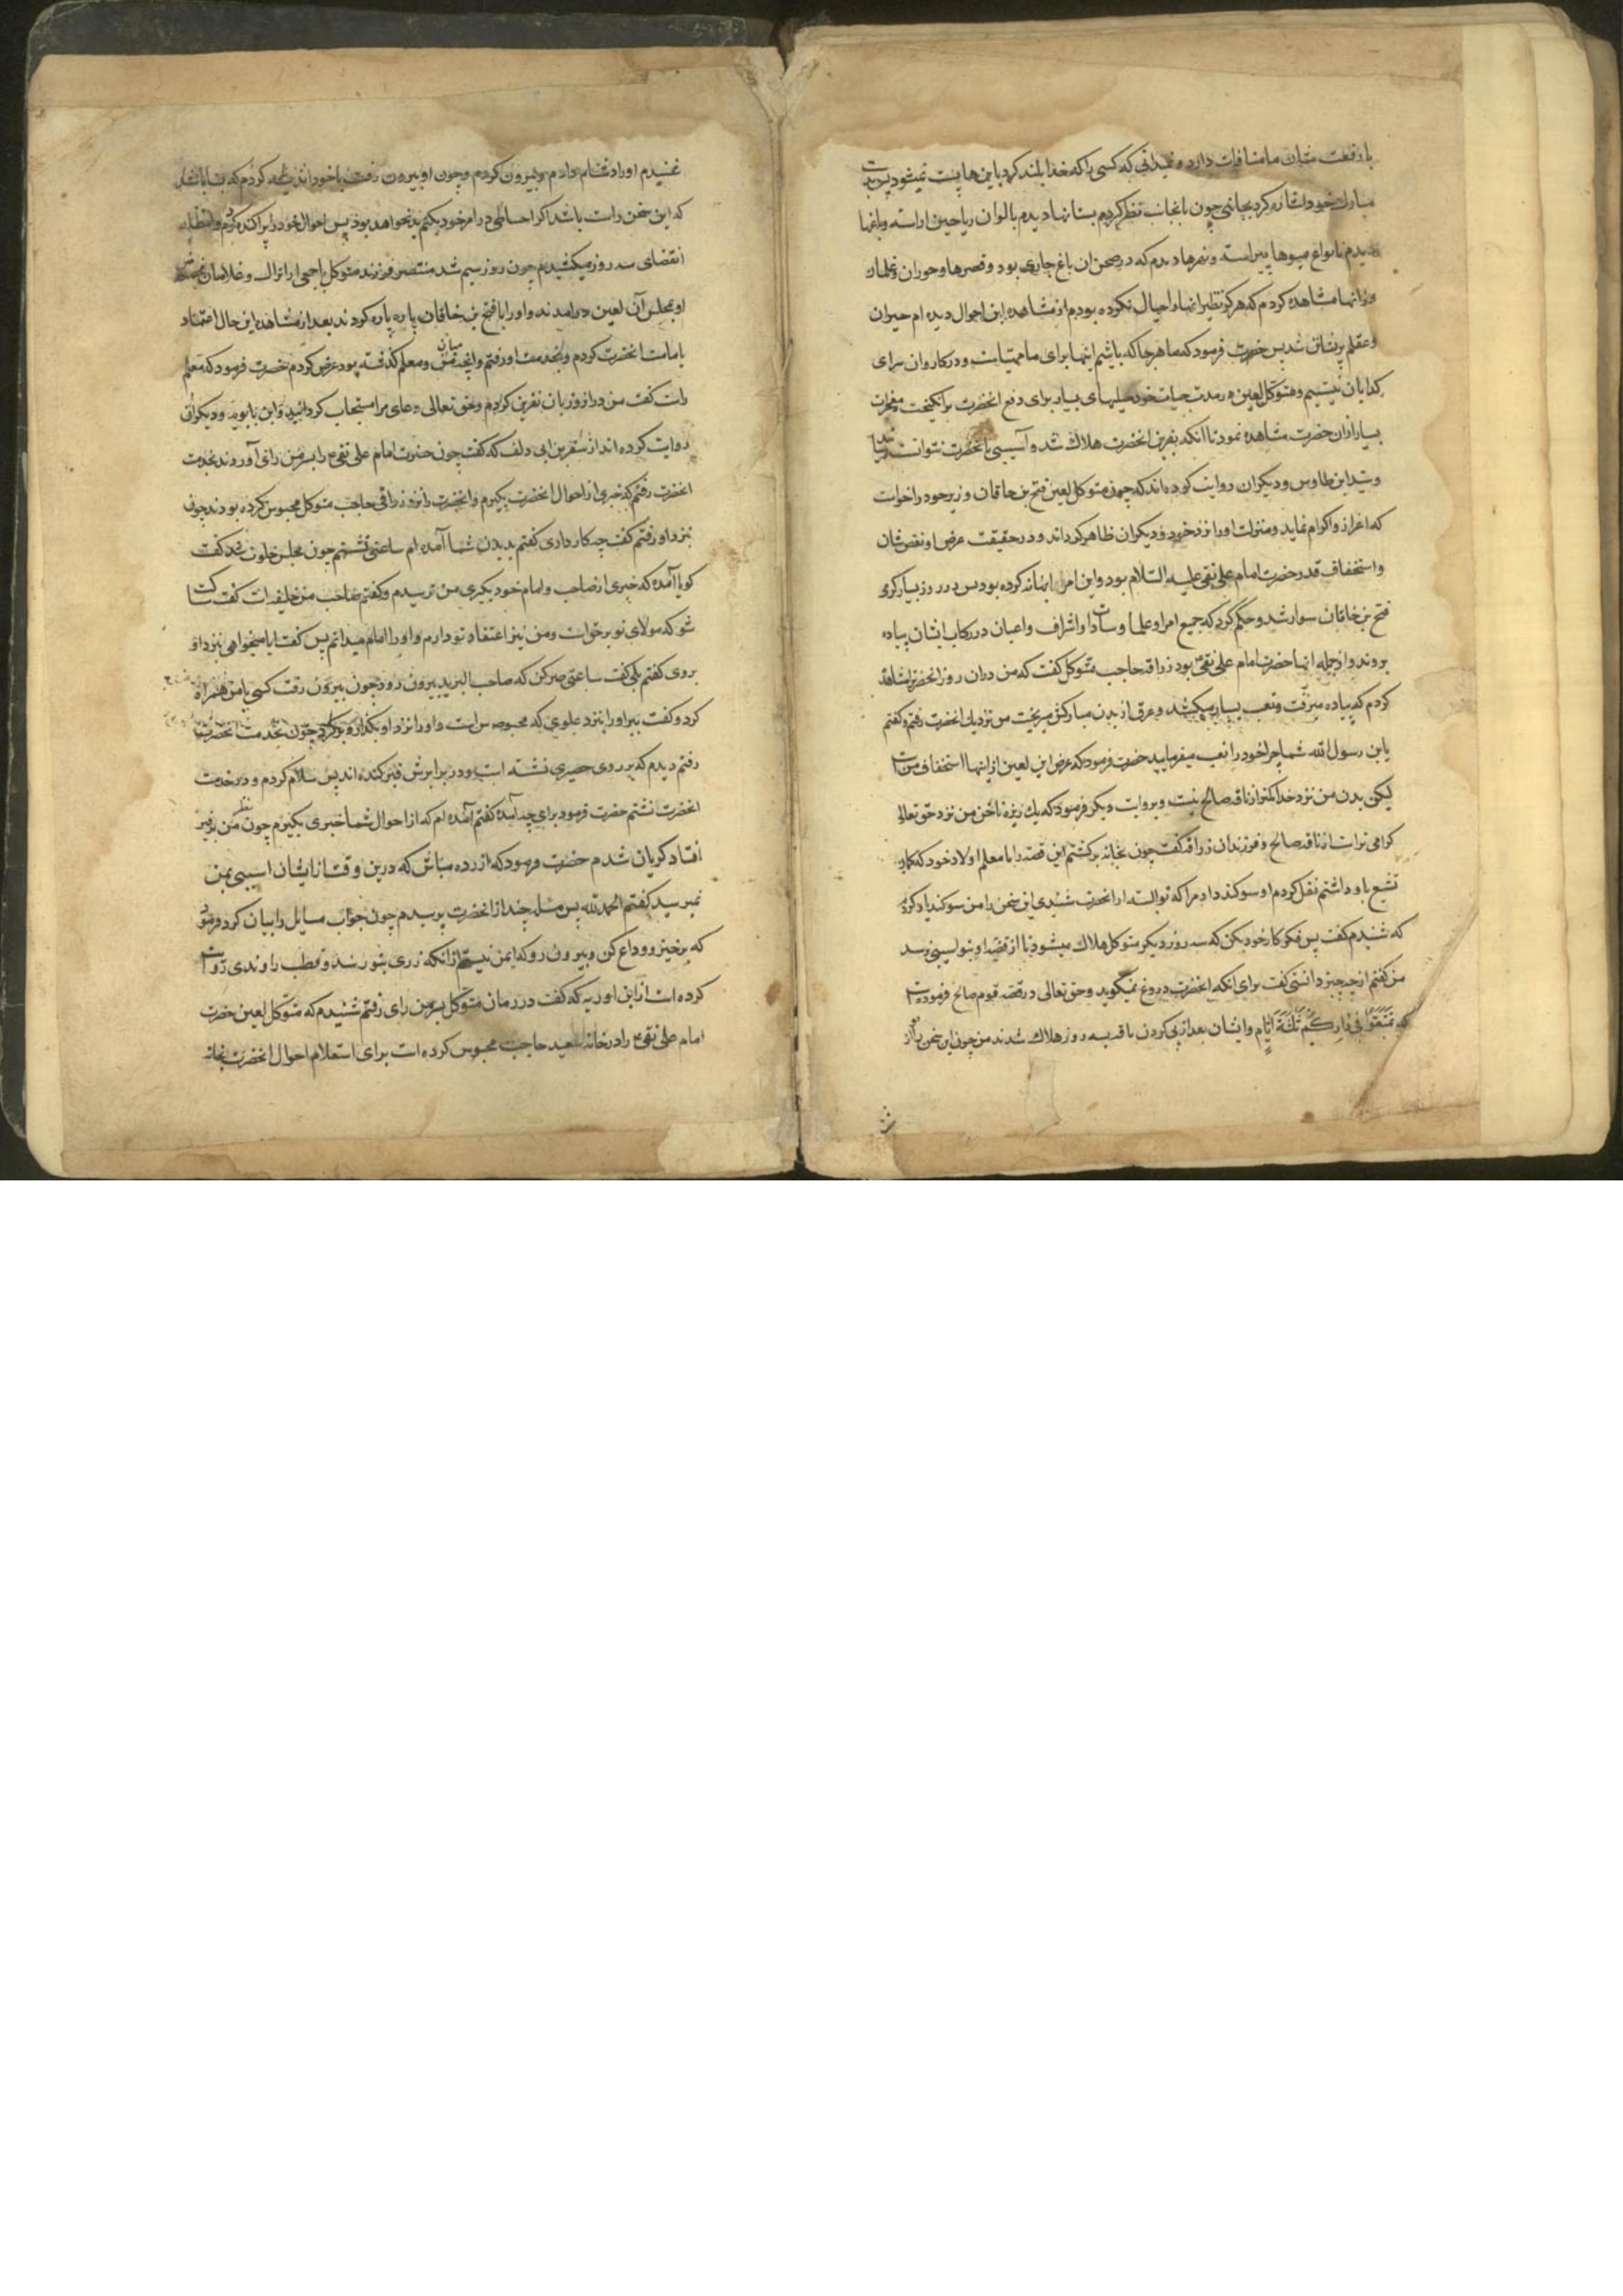 با رفعت شان ما منافات دارد و نمیدانی که کسی را که خدا بلند کرد باین ها پست نمیشود پس بدست
مبارك خود اشاره کرد بجانبی چون بانجانب نظر کردم بستانها دیدم بالوان ریاحین اراسته و باغها
دیدم بانواع میوها پیراسته و نهرها دیدم که در صحن ان باغ جاری بود و قصرها و حوران و غلمان
در انها مشاهده کردم که هرگز نظیر انها را خیال نکرده بودم از مشاهده این احوال دیده ام حیران
و عقلم پریشان شد پس حضرت فرمود که ما هر جا که باشیم اینها برای ما مهیاست و در کاروان سرای
گدایان نیستیم و متوکل لعین در مدت حیات خود حیلهای بسیار برای دفع انحضرت برانگیخت و معجزات
بسیار ازان حضرت مشاهده نمود تا انکه بنفرین انحضرت هلاك شد و آسیبی بانحضرت نتوانست رسانید
و سید ابن طاوس و دیگران روایت کرده اند که چون متوکل لعین فتح بن خاقان وزیر خود را خواست
که اعزاز و اکرام نماید و منزلت او را نزد خود و دیگران ظاهر گرداند و در حقیقت غرض او نقص شان
و استخفاف قدر حضرت امام علی نقی علیه السلام بود و این امر را بهانه کرده بود پس در روز بسیار گرمی
فتح بن خاقان سوار شد و حکم کرد که جمیع امرا و علما و سادات و اشراف و اعیان در رکاب ایشان پیاده
بروند و از جمله انها حضرت امام علی نقی ع بود زراقه حاجب متوکل گفت که من دران روز انحضرت را مشاهده
کردم که پیاده میرفت و تعب بسیار میکشید و عرق از بدن مبارکش میریخت من نزدیك انحضرت رفتم و گفتم
یابن رسول الله شما چرا خود را تعب میفرمایید حضرت فرمود که غرض این لعین از اینها استخفاف من است
لیکن بدن من نزد خدا کمتر از ناقه صالح نیست و بروایت دیگر فرمود که یك ریزه ناخن من نزد حق تعالی
گرامی تر است از ناقه صالح و فرزندان زراقه گفت چون بخانه برگشتم این قصه را با معلم اولاد خود که گمان
تشیع باو داشتم نقل کردم او سوگند داد مرا که تو البته از انحضرت شنیدی این سخن را من سوگند یاد کردم
که شنیدم گفت پس فکر کار خود بکن که سه روز دیگر متوکل هلاك میشود تا از قضیه او بتو اسیبی نرسد
من گفتم از چه چیز دانستی گفت برای انکه انحضرت دروغ نمیگوید و حق تعالی در قصه قوم صالح فرموده است
که تَمَتَّعُوا فی دارِکُم ثَلثَةَ اَیّامٍ و ایشان بعد از پی کردن ناقه بسه روز هلاك شدند من چون این سخن را از
او
شنیدم او را دشنام دادم و بیرون کردم و چون او بیرون رفت با خود اندیشه کردم که شاید
که این سخن راست باشد اگر احتیاطی در امر خود بکنم بد نخواهد بود پس احوال خود را پراکنده کردم و انتظار
انقضای سه روز میکشیدم چون روز سیم شد منتصر فرزند متوکل با جمعی از اتراك و غلامان مخصوص
او بمجلس آن لعین درامدند و او را با فتح بن خاقان پاره پاره کردند بعد از مشاهده این حال اعتقاد
بامامت انحضرت کردم و بخدمت او رفتم و انچه میان من و معلم گذشته بود عرض کردم حضرت فرمود که معلم
راست گفت من دران روز بان نفرین کردم و حق تعالی دعای مرا مستجاب گردانید و ابن بابویه و دیگران
روایت کرده اند از سقر بن ابی دلف که گفت چون حضرت امام علی نقی ع را بسر من رای آوردند بخدمت
انحضرت رفتم که خبری از احوال انحضرت بگیرم و انحضرت را نزد زراقی حاجب متوکل محبوس کرده بودند چون
نزد او رفتم گفت چه کار داری گفتم بدیدن شما آمده ام ساعتی نشستم چون مجلس خلوت شد گفت
گویا آمده که خبری از صاحب و امام خود بگیری من ترسیدم و گفتم صاحب من خلیفه است گفت ساکت
شو که مولای تو بر حق است و من نیز اعتقاد تو دارم و او را امام میدانم پس گفت ایا میخواهی نزد او
بروی گفتم بلی گفت ساعتی صبر کن که صاحب البرید بیرون رود چون بیرون رفت کسی با من همراه
کرد و گفت ببر او را بنزد علوی که محبوس است و او را نزد او بگذار و برگرد چون بخدمت انحضرت
رفتم دیدم که بر روی حصیری نشسته است و در برابرش قبر کنده اند پس سلام کردم و در خدمت
انحضرت نشستم حضرت فرمود برای چه آمدهٔ گفتم آمده ام که از احوال شما خبری بگیرم چون نظر من بر قبر
افتاد گریان شدم حضرت فرمود که ازرده مباش که درین وقت از ایشان اسیبی بمن
نمیرسد گفتم الحمد لله پس مسله چند از انحضرت پرسیدم چون جواب مسایل را بیان کرد فرمود
که برخیز و وداع کن و بیرون رو که ایمن نیستم ازانکه ضرری بتو رسد و قطب راوندی روایت
کرده است از ابن اورمه که گفت در زمان متوکل بسر من رای رفتم شنیدم که متوکل لعین حضرت
امام علی نقی ع را در خانه سعید حاجب محبوس کرده است برای استعلام احوال انحضرت بخانه